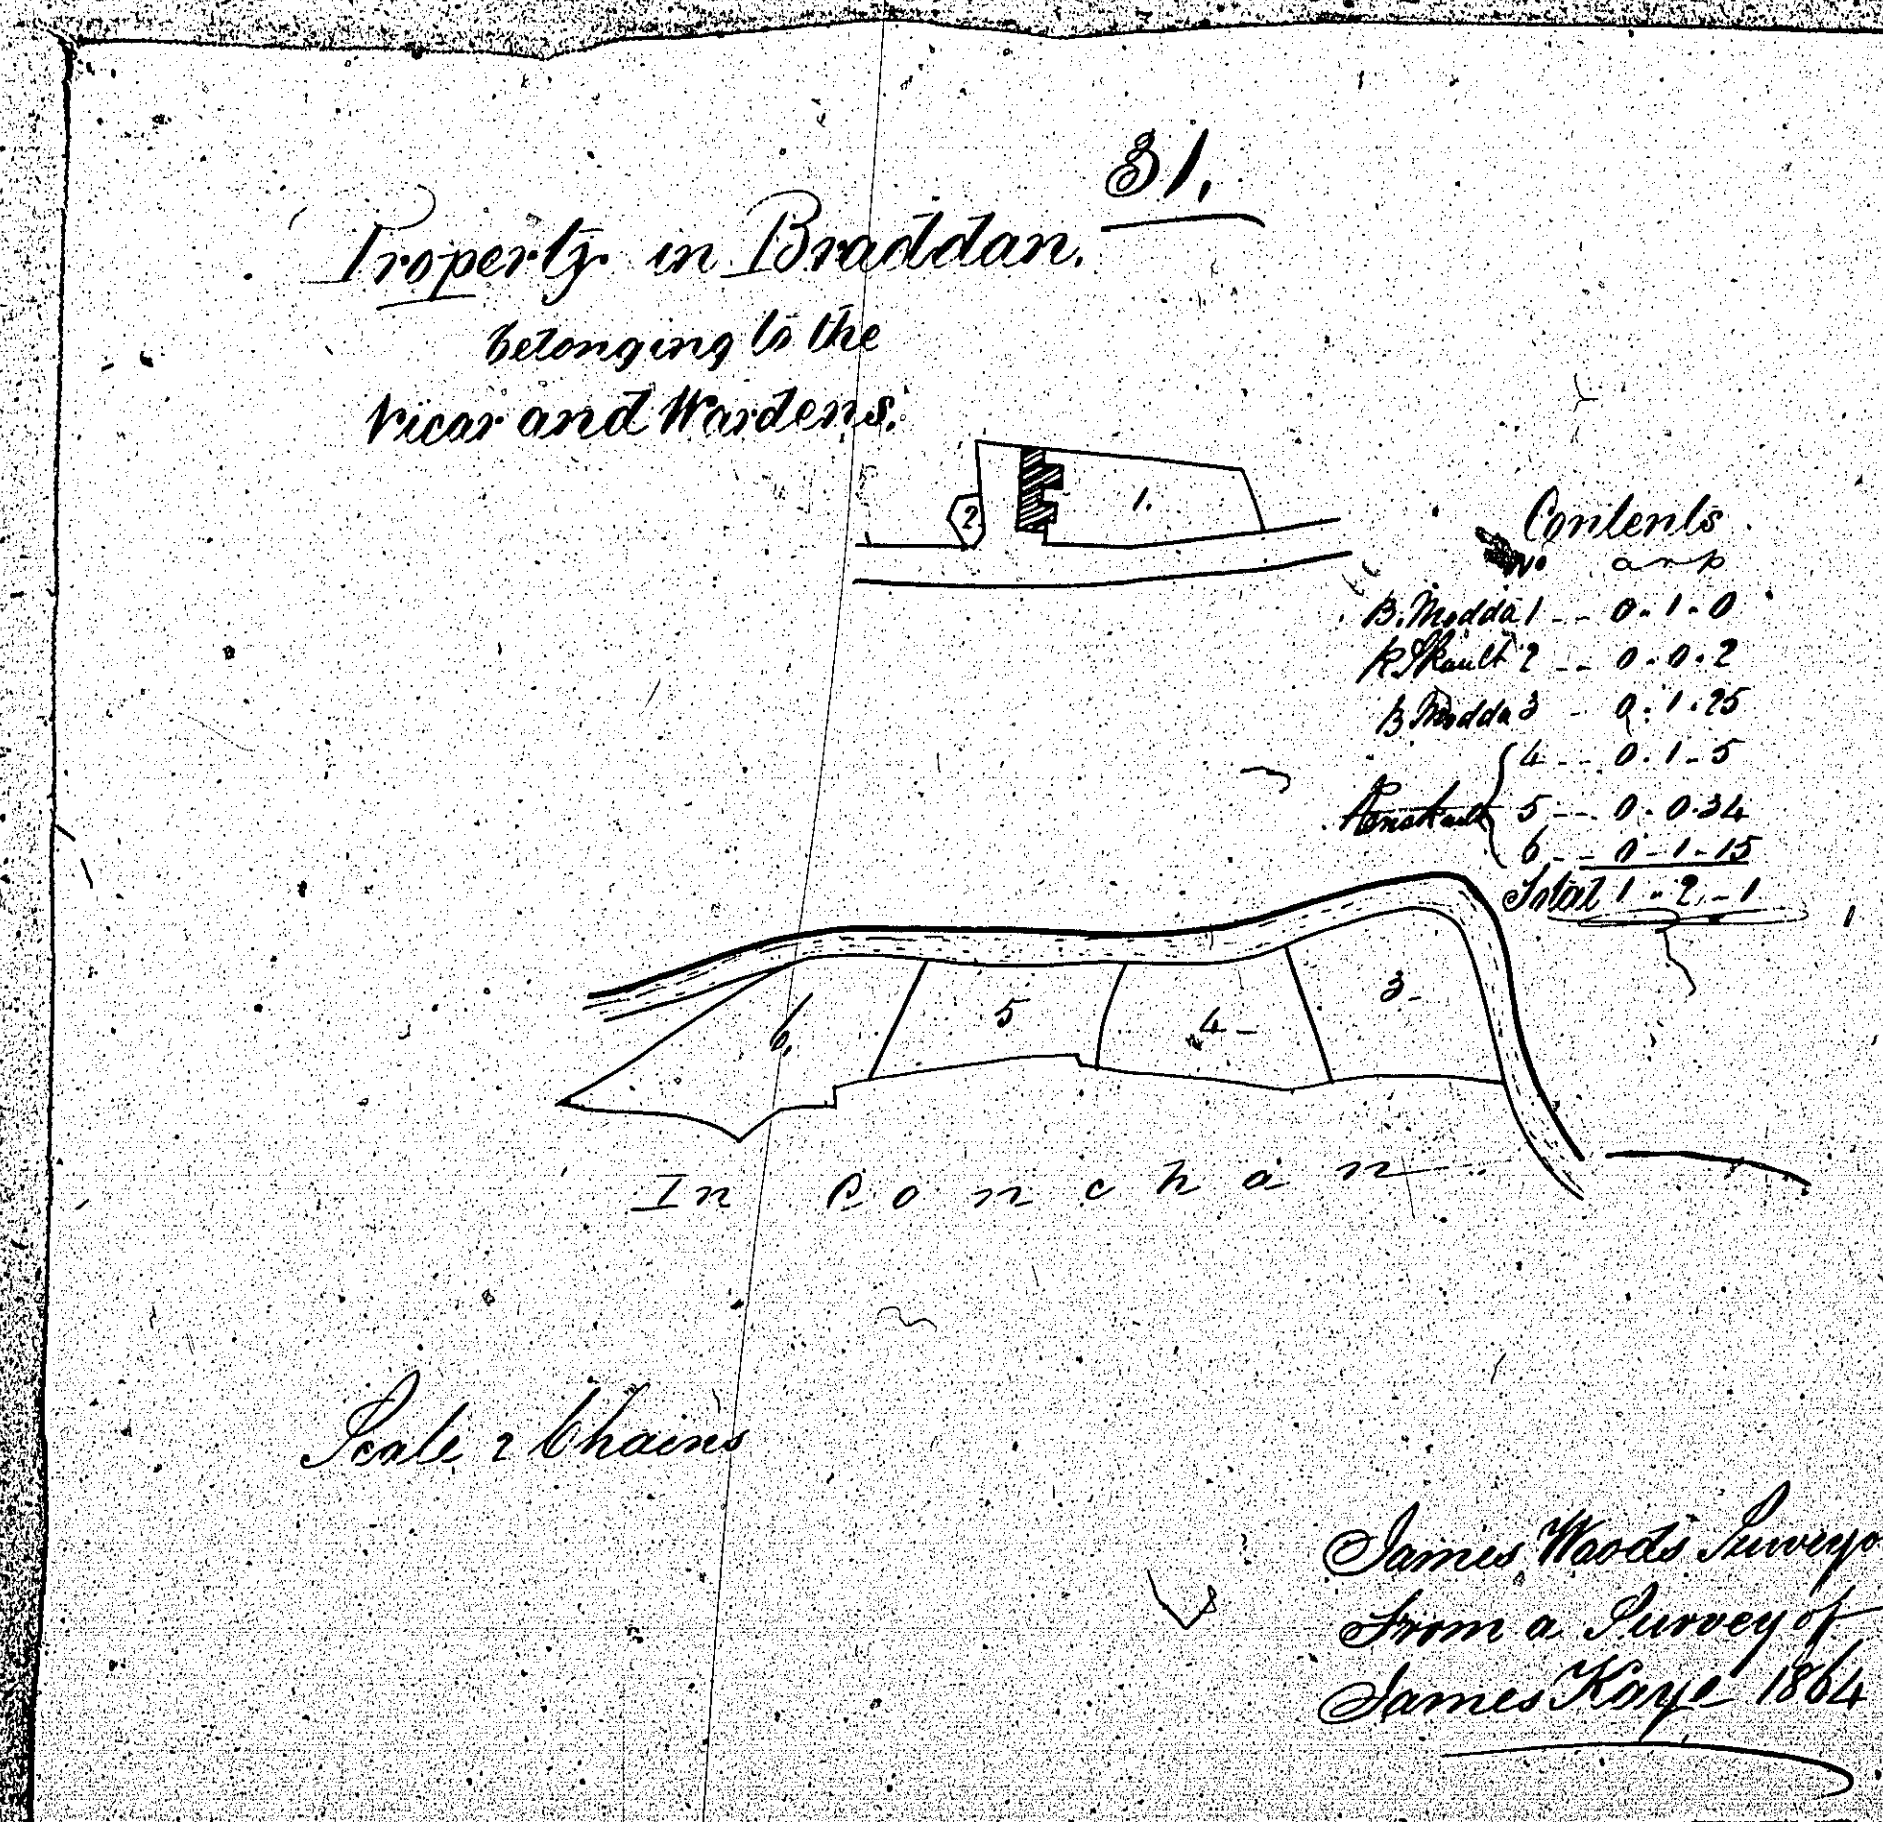 31.
Property in Braddan.
belonging to the
Vicar and Wardens.
1.
2.
Contents
No a r p
B. Modda 1 -- 0.1.0
R. Skault 2 -- 0.0.2
B. Modda 3 - 0.1.25
4 -- 0.1.5
5 -- 0.0.34
6 -- 0-1-15
Total 1-2-1
6.
5
4-
3-
In Conchan
Scale 2 Chains
James Woods Surveyo
From a Survey of
James Kaye 1864